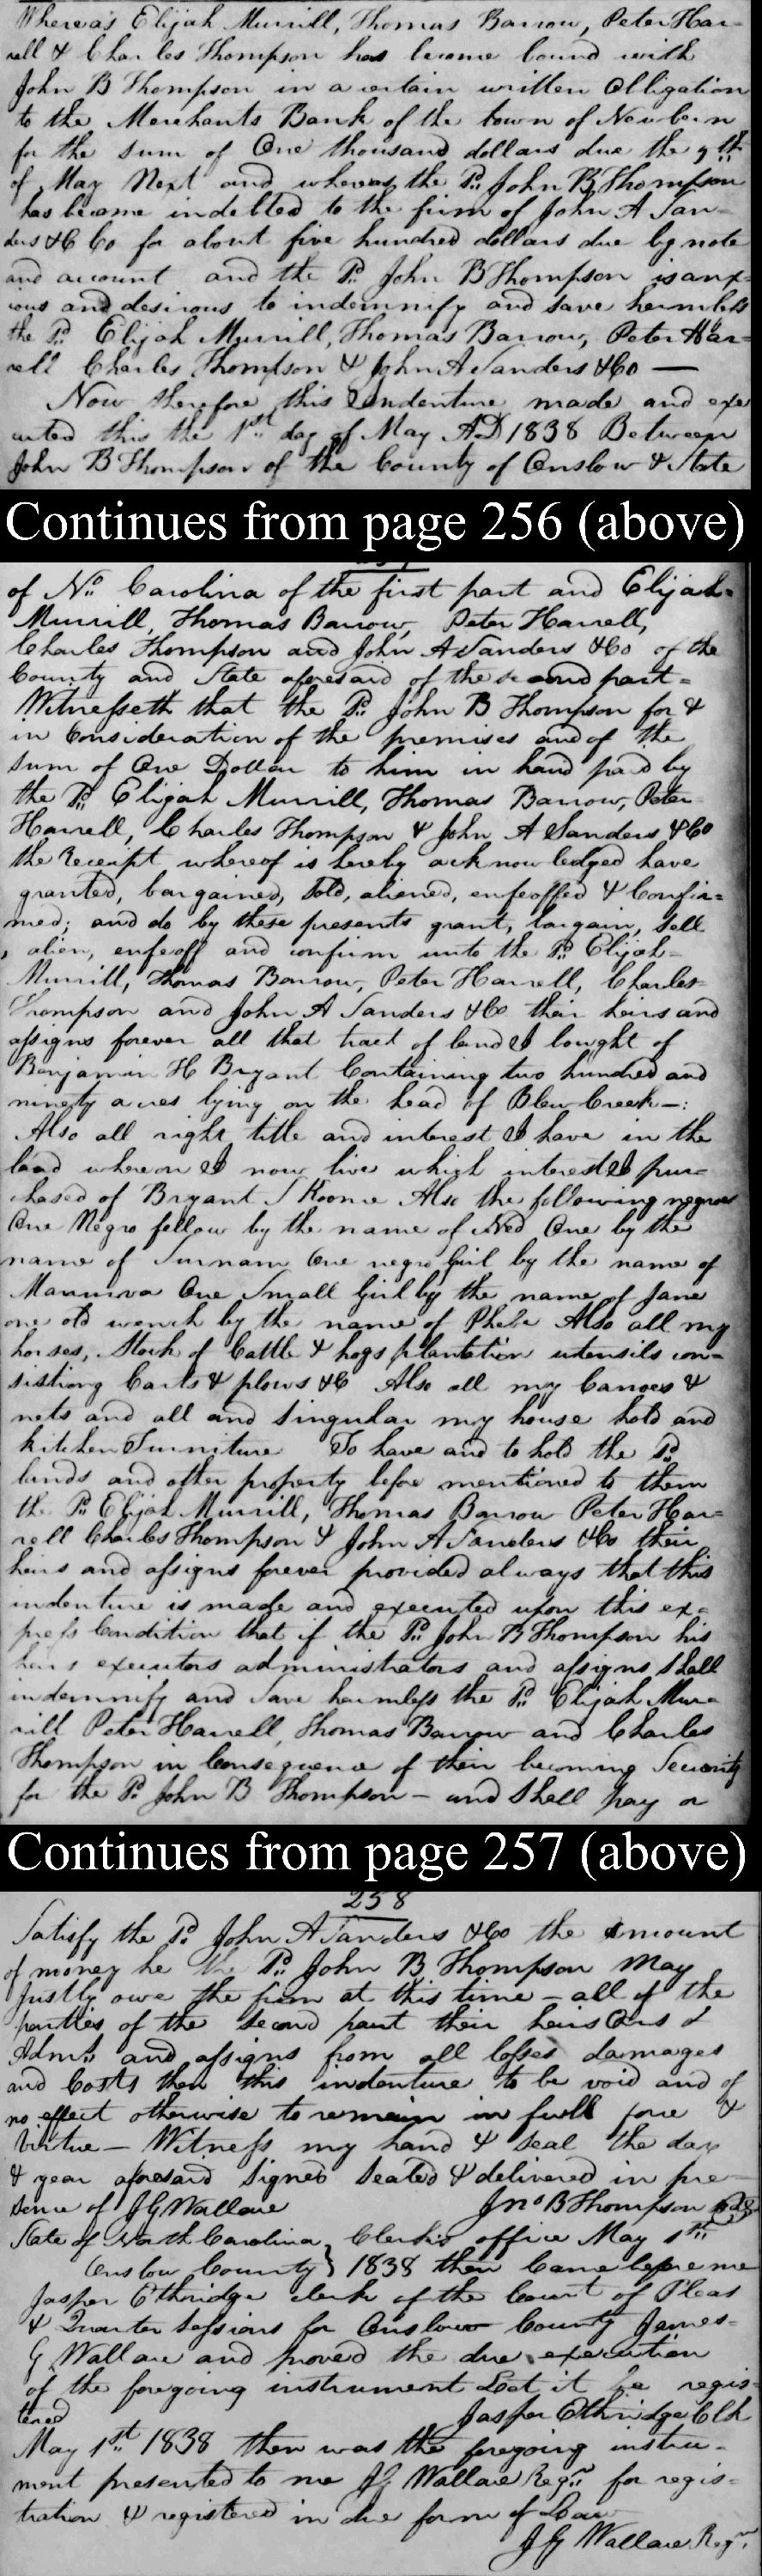 Whereas Elijah Murrill, Thomas Barrow, Peter Har-
rell & Charles Thompson has become bound with
John B Thompson in a certain written Obligation
to the Merchants Bank of the town of Newbern
for the sum of One thousand dollars due the 9th
of May Next and whereas the Sd. John B Thompson
has become indebted to the firm of John A San-
ders &C Co for about five hundred dollars due by note
and account and the Sd. John B Thompson is anx-
ious and desirous to indemnify and save harmless
the Sd. Elijah Murrill, Thomas Barrow, Peter Har-
rell Charles Thompson & John A Sanders &Co —
Now therefore this Indenture made and exe
cuted this the 1st day of May AD 1838 Between
John B Thompson of the County of Onslow & State
Continues from page 256 (above)
of No. Carolina of the first part and Elijah
Murrill, Thomas Barrow, Peter Harrell,
Charles Thompson and John A Sanders &Co of the
County and State aforesaid of the second part =
Witnesseth that the Sd. John B Thompson for &
in Consideration of the premises and of the
sum of One Dollar to him in hand paid by
the Sd. Elijah Murrill, Thomas Barrow, Peter
Harrell, Charles Thompson & John A Sanders &Co
the Receipt whereof is hereby acknowledged have
granted, bargained, Sold, aliened, enfeoffed & Confir=
med; and do by these presents grant, bargain, Sell
, alien, enfeoff and confirm unto the Sd. Elijah
Murrill, Thomas Barrow, Peter Harrell, Charles
Thompson and John A Sanders &Co their heirs and
assigns forever all that tract of land I bought of
Benjamin H Bryant Containing two hundred and
ninety acres lying on the head of Blew Creek —:
Also all right title and interest I have in the
land whereon I now live which interest I pur-
chased of Bryant S Koonce Also the following negroes
One Negro fellow by the name of Ned One by the
name of Surnam One negro Girl by the name of
Manurva One Small Girl by the name of Jane
one old wench by the name of Phebe Also all my
horses, Stock of Cattle & hogs plantation utensils con-
sistiong Carts & plows &C Also all my Canoes &
nets and all and Singular my house hold and
kitchen Furniture To have and to hold the Sd.
lands and other property before mentioned to them
the Sd. Elijah Murrill, Thomas Barrow Peter Har=
rell Charles Thompson & John A Sanders &Co their
heirs and assigns forever provided always that this
indenture is made and executed upon this ex=
press Condition that if the Sd. John B Thompson his
heirs executors administrators and assigns Shall
indemnify and Save harmless the Sd. Elijah Mur-
rill Peter Harrell, Thomas Barrow and Charles
Thompson in Consequence of their becoming Security
for the Sd. John B Thompson — and Shall pay or
Continues from page 257 (above)
258
Satisfy the Sd. John A Sanders &Co the amount
of money he the Sd. John B Thompson May
Justly owe the firm at this time — all of the
parties of the Second part their heirs &
Admrs. and assigns from all losses damages
and Costs then this indenture to be void and of
no effect otherwise to remain in full force &
Virtue — Witness my hand & seal the day
& year aforesaid Signed Sealed & delivered in pre
sence of J G Wallace Jno B Thompson
State of North Carolina Clerks office May 1st
Onslow County } 1838 then Came before me
Jasper Ethridge clerk of the Court of Pleas
& Quarter Sessions for Onslow County James
G Wallace and proved the due execution
of the foregoing instrument Let it be regis
tered Jasper Ethridge Clk
May 1st 1838 then was the foregoing instru-
ment presented to me JG Wallace Regr. for regis=
tration & registered in due form of Law
J G Wallace Regr.